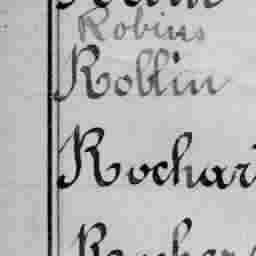 Robins
Rollin
Rochar